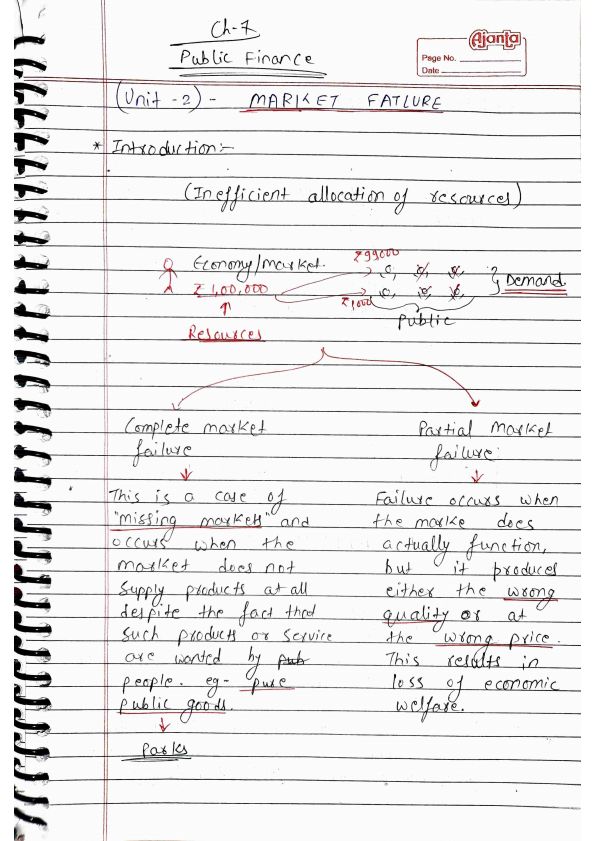 Ch-7
Public Finance
Ajanta
Page No.
Date
(Unit -2) - MARKET FAILURE
* Introduction:-
(Inefficient allocation of resources)
₹99000
Economy/market.
Demand
₹ 1,00,000
₹1,000
Public
Resources
Complete market
failure
Partial Market
failure:
This is a case of
"missing markets" and
occurs when the
market does not
supply products at all
despite the fact that
such products or service
are wanted by pub
people. eg- pure
public goods.
Parks
Failure occurs when
the marke does
actually function,
but it produces
either the wrong
quality or at
the wrong price.
This results in
loss of economic
welfare.